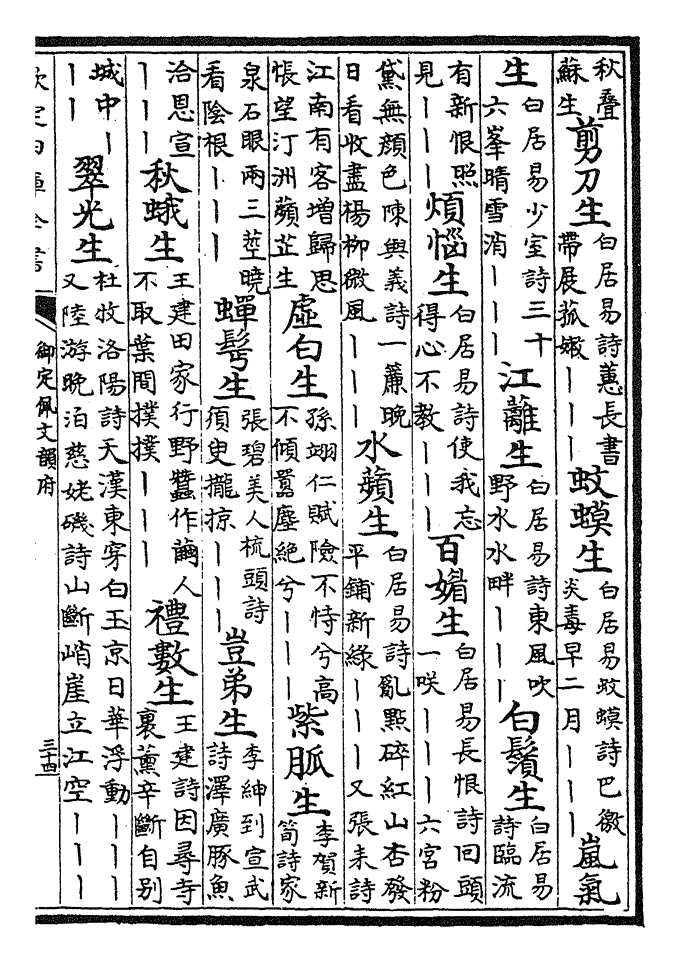 秋疊
蘇生
剪刀生
白居易詩蕙長書
帶展菰嫩｜｜｜
蚊蟆生
白居易蚊蟆詩巴徼
炎毒早二月｜｜｜
嵐氣
生
白居易少室詩三十
六峯晴雪消｜｜｜
江蘺生
白居易詩東風吹
野水水畔｜｜｜
白鬚生
白居易
詩臨流
有新恨照
見｜｜｜
煩惱生
白居易詩使我忘
得心不教｜｜｜
百媚生
白居易長恨詩回頭
一咲｜｜｜六宮粉
黛無顔色陳與義詩一簾晚
日看收盡楊柳微風｜｜｜
水蘋生
白居易詩亂點碎紅山杏發
平鋪新綠｜｜｜又張耒詩
江南有客增歸思
悵望汀洲蘋芷生
虛白生
孫翊仁賦險不恃兮高
不傾囂塵絕兮｜｜｜
紫脈生
李賀新
筍詩家
泉石眼兩三莖曉
看陰根｜｜｜
蟬髩生
張碧美人梳頭詩
須臾攏掠｜｜｜
豈弟生
李紳到宣武
詩澤廣豚魚
洽恩宣
｜｜｜
秋蛾生
王建田家行野蠶作繭人
不取葉間撲撲｜｜｜
禮數生
王建詩因尋寺
裏薰辛斷自别
城中｜
｜｜
翠光生
杜牧洛陽詩天漢東穿白玉京日華浮動｜｜｜
又陸游晚泊慈姥磯詩山斷峭崖立江空｜｜｜
欽定四庫全書
御定佩文韻府
三十四